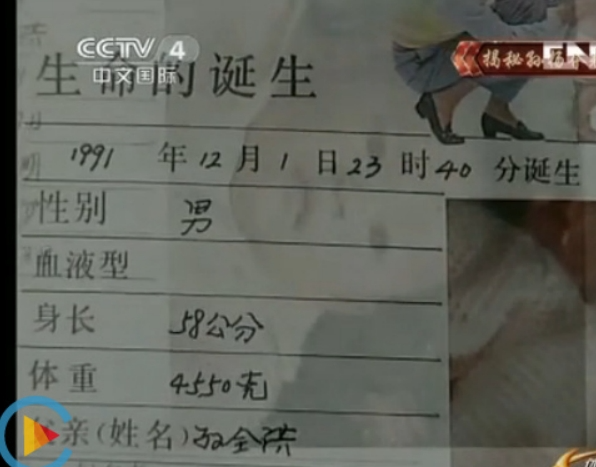 CCTV 4
中文国际
揭秘孙杨
生命的诞生
1991 年 12 月 1 日 23 时 40 分诞生
性别 男
血液型
身长 58公分
体重 4550克
父亲(姓名) 孙全洪